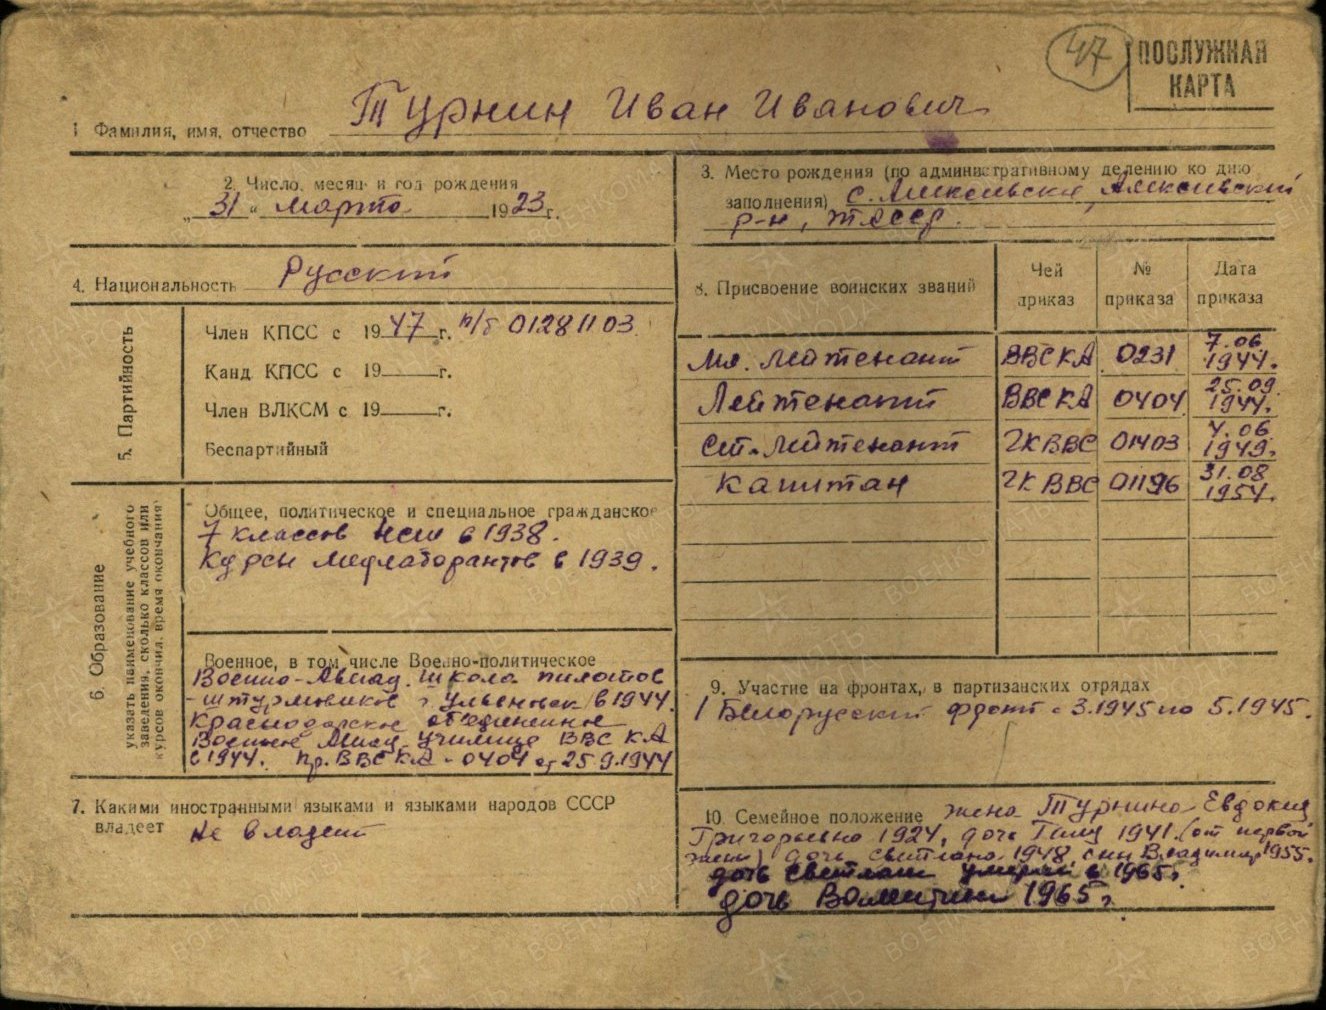 47
ПОСЛУЖНАЯ
КАРТА
1 Фамилия, имя, отчество Турнин Иван Иванович
2. Число, месяц и год рождения
„ 31 “ марта 1923 г.
3. Место рождения (по административному делению ко дню
заполнения) с.
р-н, ТАССР.
4. Национальность Русский
5. Партийность
Член КПСС с 1947 г. п/б 01281103
Канд КПСС с 19 г.
Член ВЛКСМ с 19 г.
Беспартийный
6. Образование
указать наименование учебного
заведения, сколько классов или
курсов окончил, время окончания
Общее, политическое и специальное гражданское
7 классов нсш в 1938.
Курсы медлаборантов в 1939.
Военное, в том числе Военно-политическое
Военно-Авиац. школа пилотов
-штурмовиков г. Ульяновск в 1944.
Краснодарское объединенное
Военное Авиац. училище ВВС КА
в 1944. Пр. ВВС КА - 0404 от 25.9.1944
7. Какими иностранными языками и языками народов СССР
владеет Не владеет
8. Присвоение воинских званий
Чей приказ
№ приказа
Дата приказа
Мл. лейтенант ВВС КА 0231 7.06 1944.
Лейтенант ВВС КА 0404 25.09 1944.
Ст. лейтенант ГК ВВС 01403 4.06 1949.
Капитан ГК ВВС 01196 31.08 1954.
9. Участие на фронтах, в партизанских отрядах
1 Белорусский фронт с 3.1945 по 5.1945.
10. Семейное положение жена Турнина Евдокия
Григорьевна 1924, дочь 1941 (от первой
жены) дочь Светлана 1948, сын Владимир 1955.
дочь Светлана умерла в 1965г.
дочь Валентина 1965г.